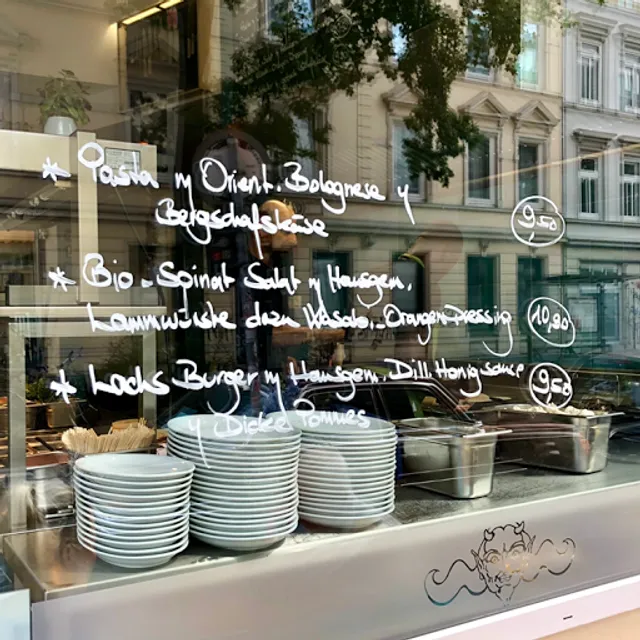 * Pasta m Orient. Bolognese y 9,50
Bergschafskäse
* Bio-Spinat Salat m Hausgem.
Lammwürste dazu Wasabi-Orangen Dressing 10,90
* Lachs Burger m Hausgem. Dill. Honigsauce 9,50
y Dicke Pommes